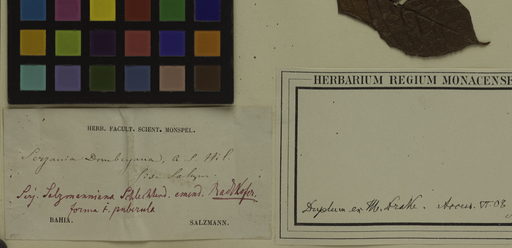 HERB. FACULT. SCIENT. MONSPEL.
Serjania Dombeyana, A. S. Hil.
fide Salzm.
Serj. Salzmanniana Schlechtend. emend. Radlkofer.
forma F. puberula
BAHIA.
SALZMANN.
HERBARIUM REGIUM MONACENSE
Duplum ex M. Drake. Acces. VI 08